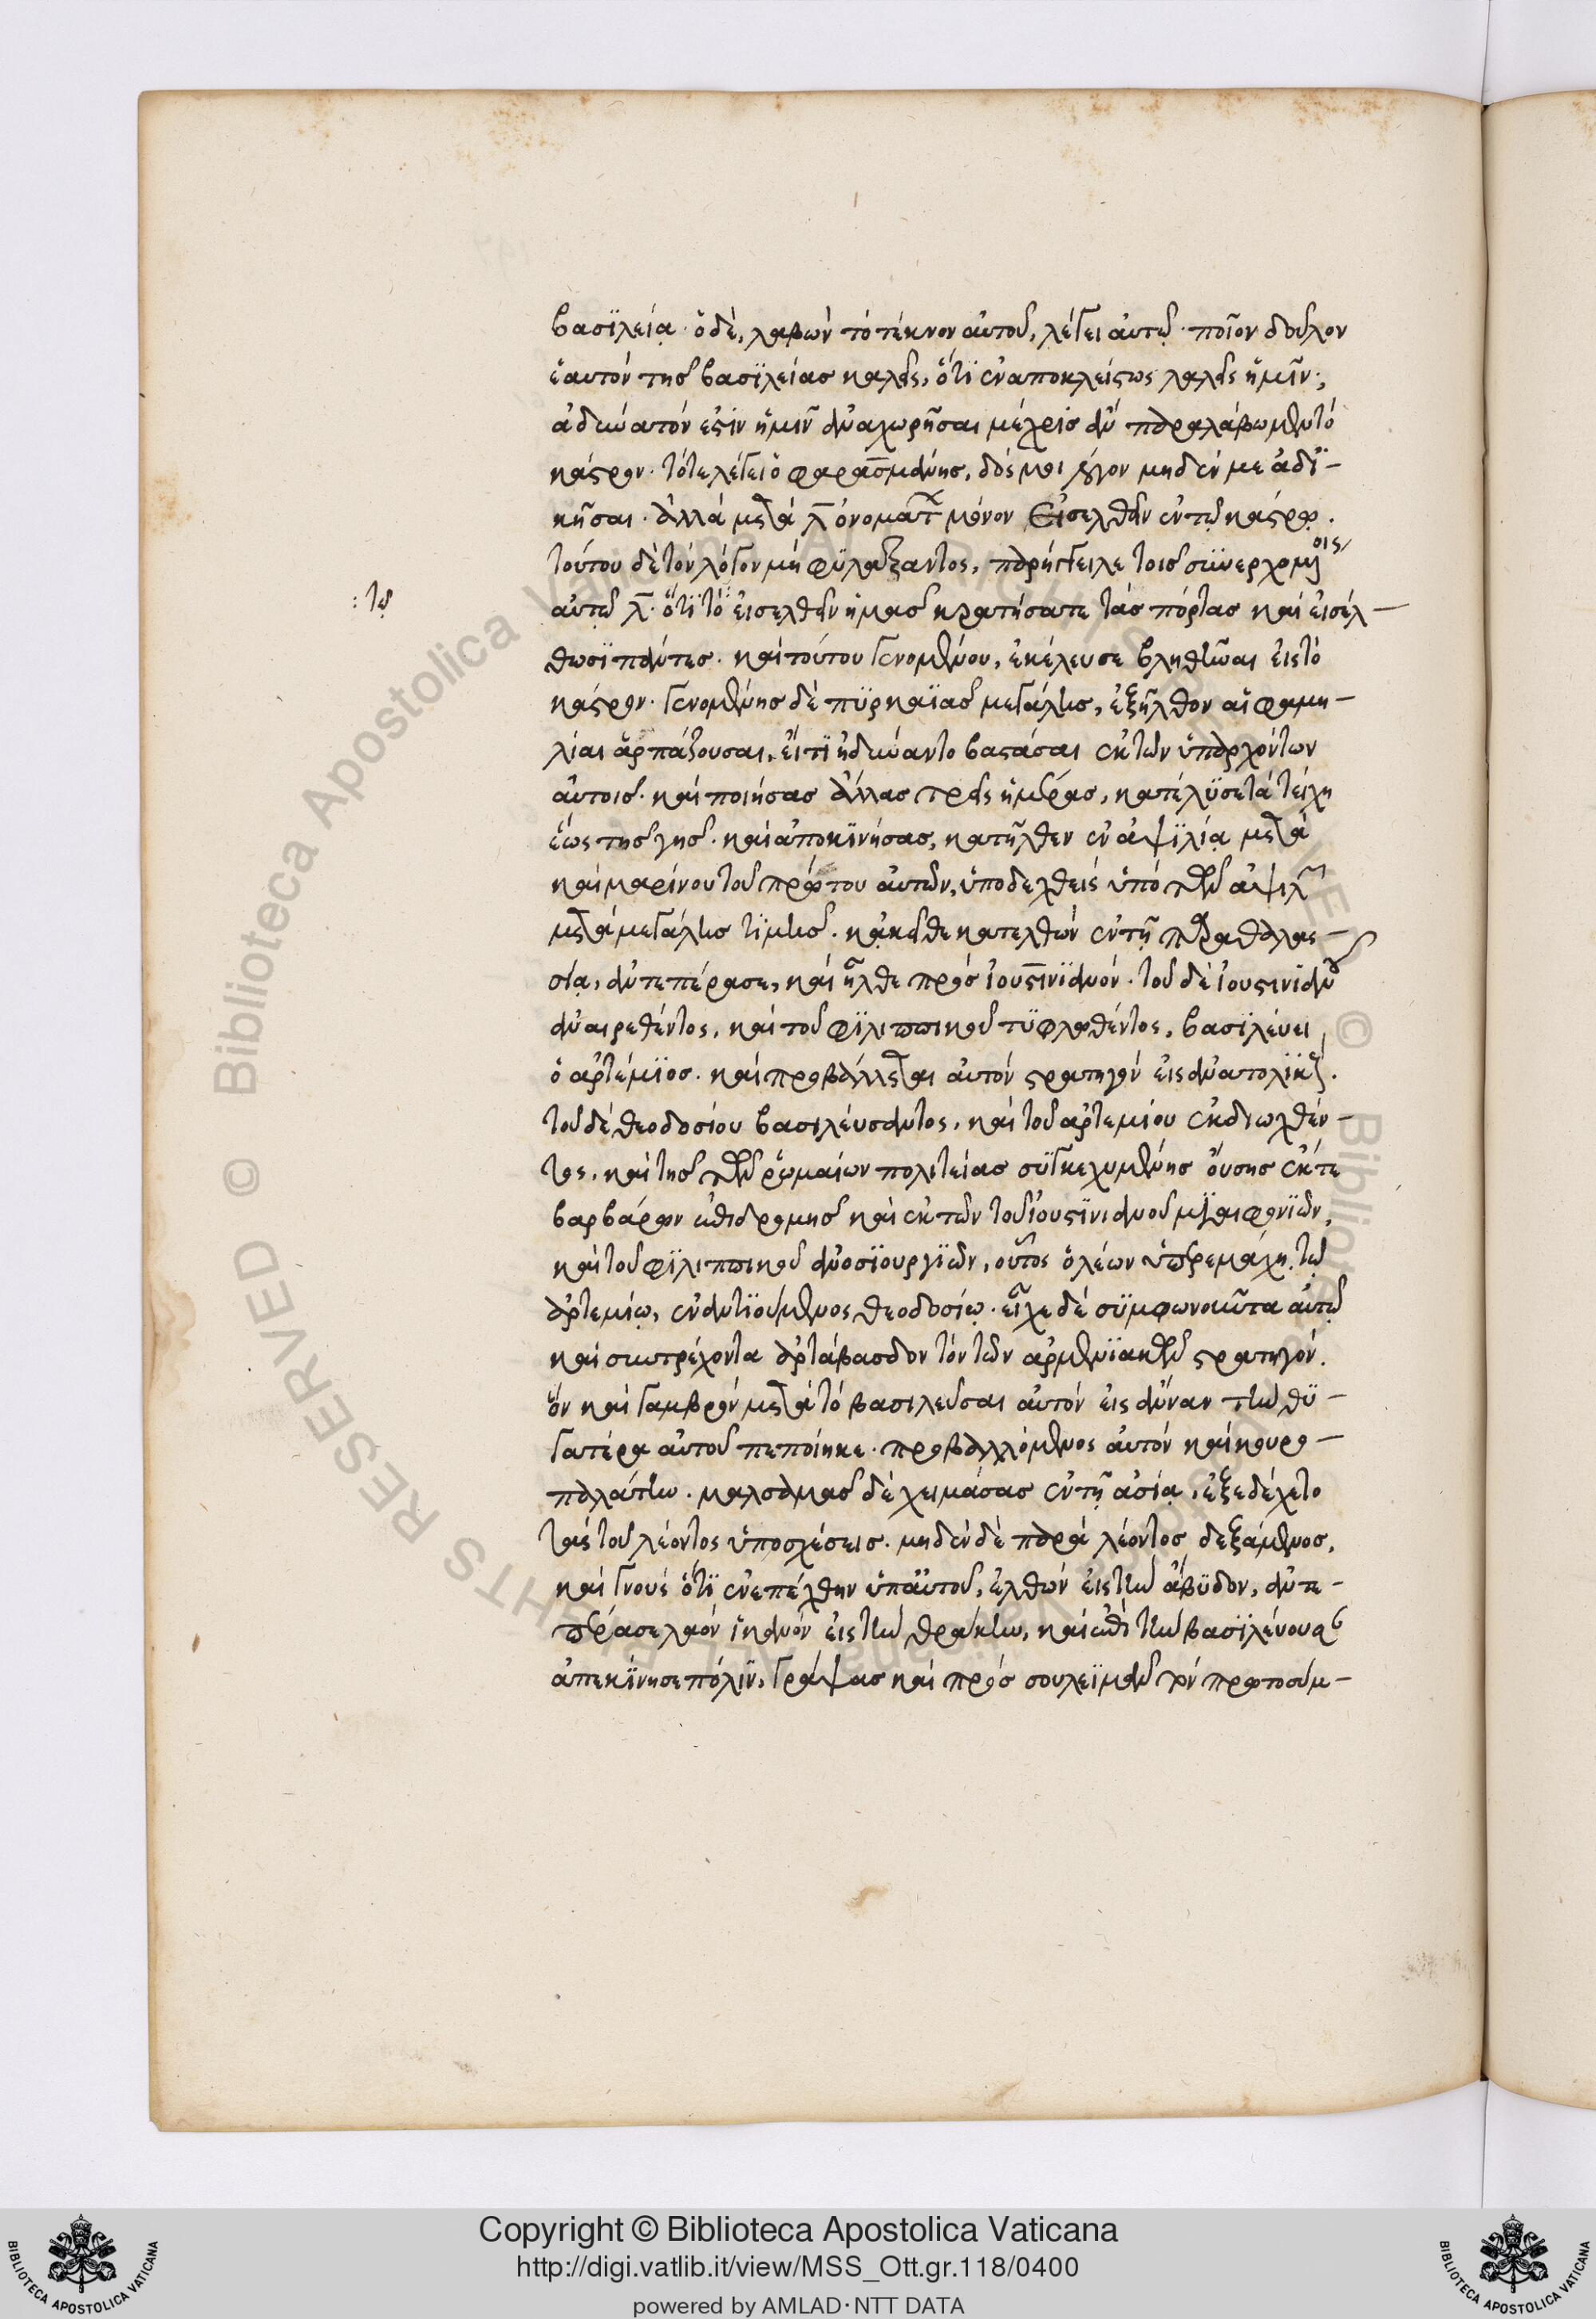 βασϊλεία. ὁ δὲ, λαβὼν τὸ τέκνον αὐτοῦ, λέγει αὐτῷ. ποῖον δοῦλον
ἑαυτὸν τῆσ βασϊλείασ καλεῖς, ὅτϊ ἐναποκλείστως λαλεῖς ἡμῖν;
ἀδύνατόν ἐστὶν ἡμῖν ἀναχωρῆσαι μέχρισ ἂν παραλάβωμεν τὸ
κάστρον. τότε λέγει ὁ φαρασμάνησ, δός μοι λόγον μηδέν με ἀδϊ-
κῆσαι. ἀλλὰ μετὰ λ̅ ὀνομάτ μόνον εἰσελθεῖν ἐν τῷ κάστρῳ.
τούτου δὲ τὸν λόγον μὴ φϋλάξαντος, παρήγγειλε τοῖσ συνερχομένοις
: τῷ
αὐτῷ λ̅. ὅτϊ τὸ εἰσελθεῖν ἡμᾶσ κρατήσατε τὰσ πόρτασ καὶ εἰσέλ-
θωσϊ πάντεσ. καὶ τούτου γενομένου, ἐκέλευσε βληθῆναι εἰς τὸ
κάστρον. γενομένησ δὲ πϋρκαϊᾶσ μεγάλησ, ἐξῆλθον αἱ φαμη-
λίαι ἁρπάζουσαι, εἴ τϊ ἠδύναντο βαστάσαι ἐκ τῶν ὑπαρχόντων
αὐτοῖσ. καὶ ποιήσασ ἄλλασ τρεῖς ἡμέρασ, κατέλϋσε τὰ τείχη
ἕως τῆσ γῆσ. καὶ ἀποκϊνήσασ, κατῆλθεν ἐν ἀψϊλίᾳ μετὰ
καὶ μαρίνου τοῦ πρώτου αὐτῶν, ὑποδεχθεὶς ὑπὸ τῶν ἀψιλ
μετὰ μεγάλησ τϊμῆσ. κἀκεῖθε κατελθὼν ἐν τῇ παραθαλασ-
σίᾳ, ἀντεπέρασε, καὶ ἦλθε πρὸσ ἰουστϊνϊανόν. τοῦ δὲ ἰουστινιανοῦ
ἀναιρεθέντος, καὶ τοῦ φϊλιππικοῦ τϋφλωθέντος, βασϊλεύει
ὁ ἀρτέμϊοσ. καὶ προβάλλεται αὐτὸν στρατηγὸν εἰς ἀνατολϊκ.
τοῦ δὲ θεοδοσίου βασιλεύσαντος, καὶ τοῦ ἀρτεμίου ἐκδιωχθέν-
τος, καὶ τῆσ τῶν ῥωμαίων πολιτείασ συγκεχυμένησ οὔσησ ἔκ τε
βαρβάρων ἐπιδρομῆσ καὶ ἐκ τῶν τοῦ ἰουστϊνιανοῦ μϊαιφονϊῶν,
καὶ τοῦ φϊλιππικοῦ ἀνοσϊουργϊῶν, οὗτος ὁ λέων ὑπερεμάχη τῷ
ἀρτεμίῳ, ἐναντϊούμενος θεοδοσίῳ. εἶχε δὲ σύμφωνοῦντα αὐτῷ
καὶ συντρέχοντα ἀρτάβασδον τὸν τῶν ἀρμενϊακῶν στρατηγόν.
ὃν καὶ γαμβρὸν μετὰ τὸ βασιλεῦσαι αὐτὸν εἰς ἄνναν τὴν θϋ-
γατέρα αὐτοῦ πεποίηκε. προβαλλόμενος αὐτὸν καὶ κουρο-
παλάτην. μαλσαλμᾶσ δὲ χειμάσασ ἐν τῇ ἀσίᾳ, ἐξεδέχετο
τὰς τοῦ λέοντος ὑποσχέσεισ. μηδὲν δὲ παρὰ λέοντος δεξάμενοσ,
καὶ γνοὺς ὅτϊ ἐνεπαίχθην ὑπ᾽ αὐτοῦ, ἐλθὼν εἰς τὴν ἄβϋδον, ἀντε-
πέρασε λαὸν ἱκανὸν εἰς τὴν θράκην, καὶ ἐπὶ τὴν βασϊλεύουσ
ἀπεκίνησε πόλϊν, γράψασ καὶ πρὸσ σουλεϊμὰν τὸν πρωτοσύμ-
Copyright © Biblioteca Apostolica Vaticana
http://digi.vatlib.it/view/MSS_Ott.gr.118/0400
powered by AMLAD·NTT DATA